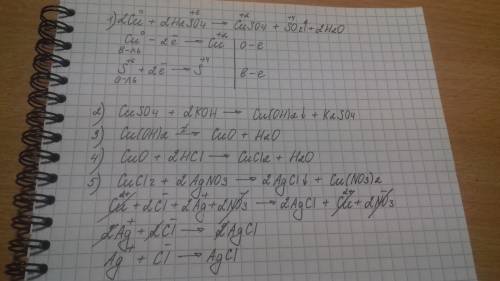 1) 2Cu⁰ + 2H2S⁺⁶O4 → Cu⁺²SO4 + S⁺⁴O2↑ + 2H2O
Cu⁰ − 2ē → Cu⁺² | о-е
в-ль
S⁺⁶ + 2ē → S⁺⁴ | в-е
о-ль
2) CuSO4 + 2KOH → Cu(OH)2↓ + K2SO4
3) Cu(OH)2 → CuO + H2O
4) CuO + 2HCl → CuCl2 + H2O
5) CuCl2 + 2AgNO3 → 2AgCl↓ + Cu(NO3)2
Cu²⁺ + 2Cl⁻ + 2Ag⁺ + 2NO3⁻ → 2AgCl + Cu²⁺ + 2NO3⁻
2Ag⁺ + 2Cl⁻ → 2AgCl
Ag⁺ + Cl⁻ → AgCl